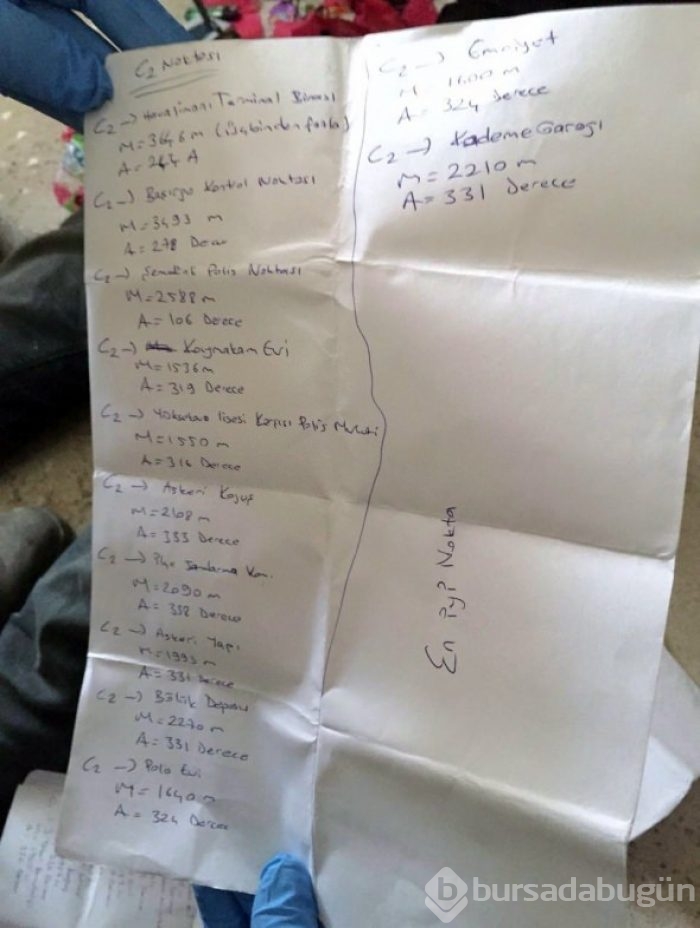 C2 Noktası
C2 → Havalimanı Terminal Binası
M = 3646 m (Üçbinden fazla)
A = 244 A
C2 → Kontrol Noktası
M = 3493 m
A = 278 Derece
C2 → Polis Noktası
M = 2588 m
A = 106 Derece
C2 → Kaymakam Evi
M = 1536 m
A = 319 Derece
C2 → Lisesi Karşısı Polis
M = 1550 m
A = 316 Derece
C2 → Askeri
M = 2168 m
A = 333 Derece
C2 → Jandarma Kom.
M = 2090 m
A = 338 Derece
C2 → Askeri Yapı
M = 1995 m
A = 331 Derece
C2 → Bölük Deposu
M = 2270 m
A = 331 Derece
C2 → Polo Evi
M = 1640 m
A = 324 Derece
C2 → Emniyet
M = 1600 m
A = 324 Derece
C2 → Kademe Garajı
M = 2210 m
A = 331 Derece
En iyi Nokta
b bursadabugün